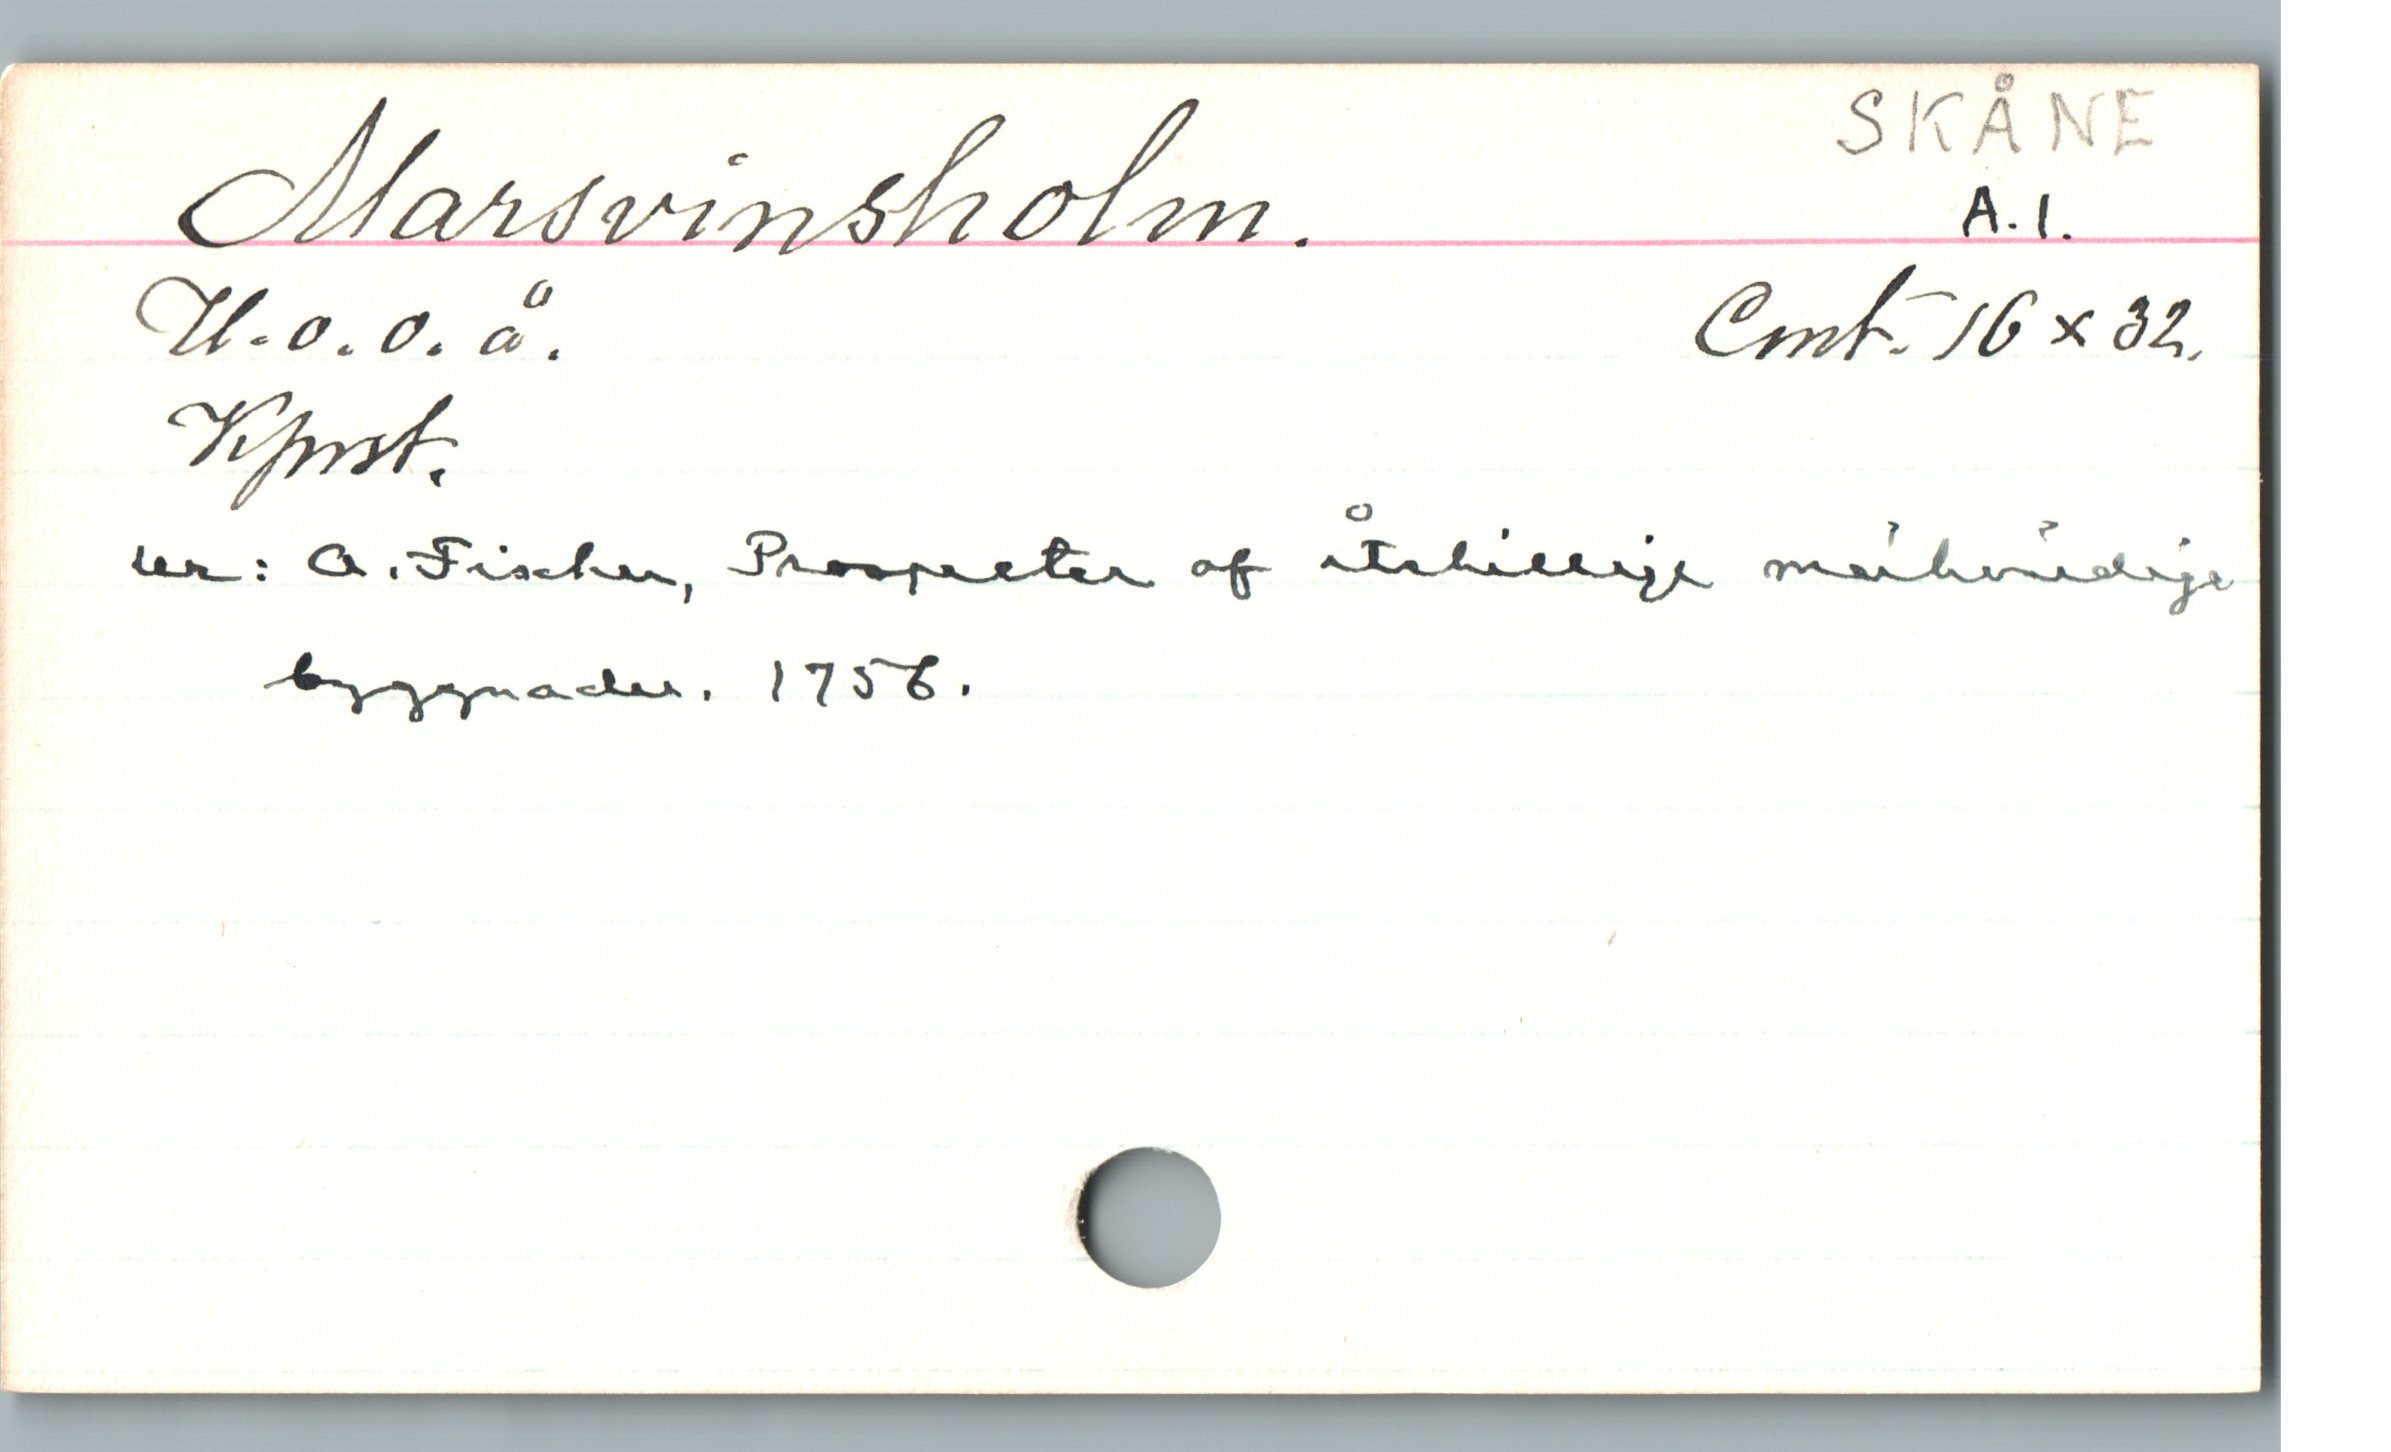 SKÅNE
Marsvinsholm. A.1.
U.o.o.å. Cmt. 16 x 32.
Kprst.
ur: A. Fischer, Prospecter af åtskillige märkvärdige
byggnader. 1756.